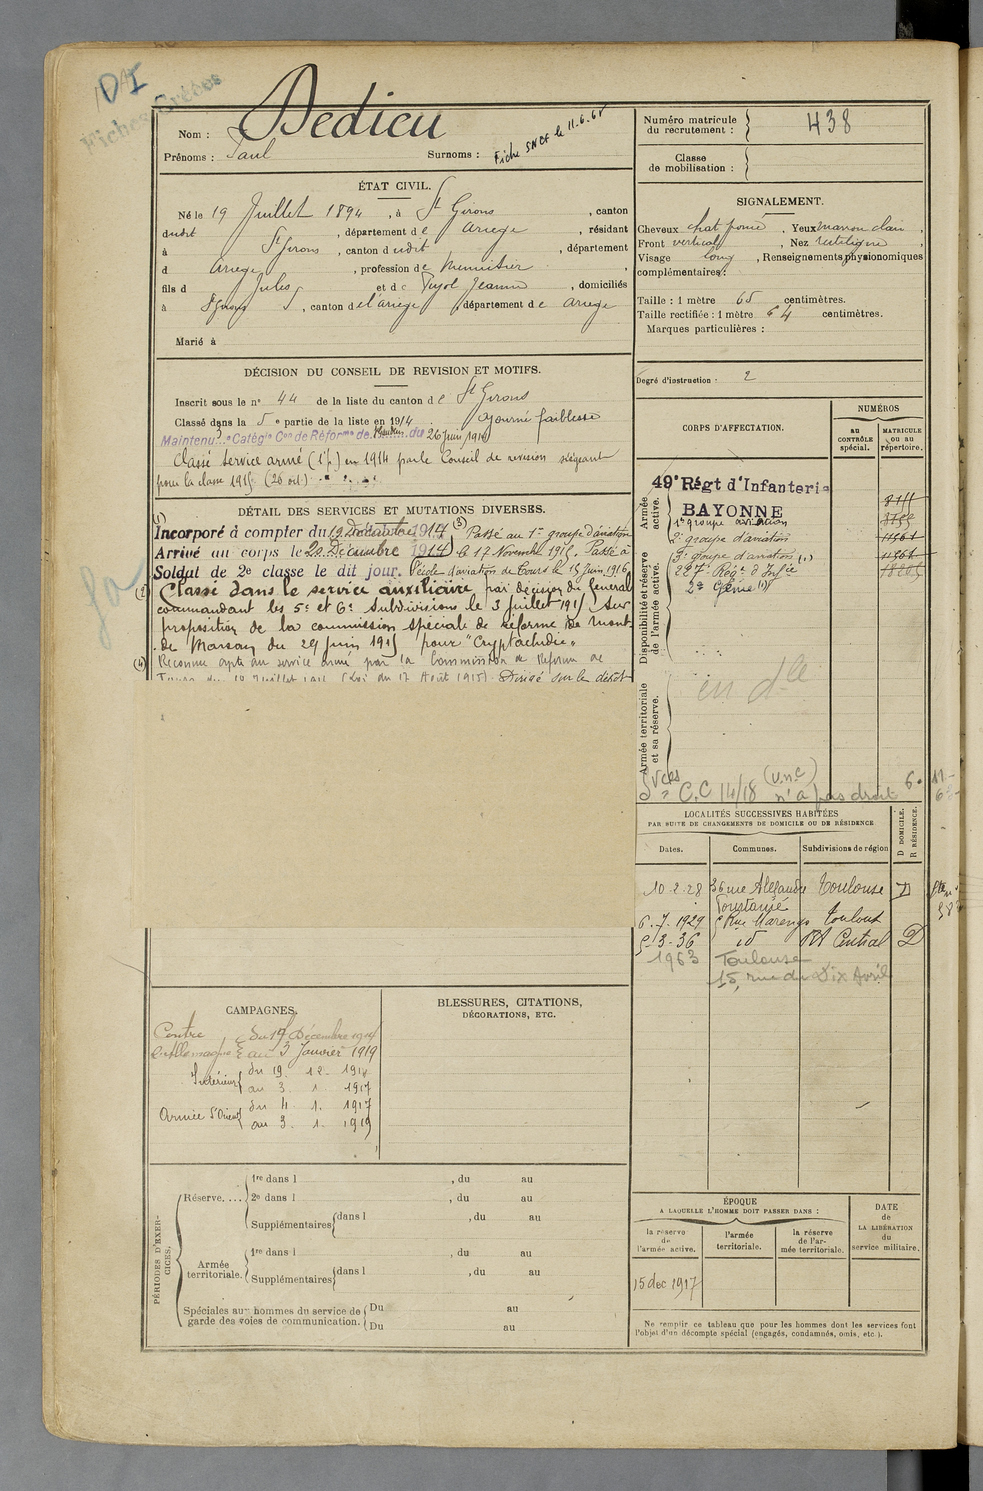 DI
Fiches
Nom : Dedieu
Prénoms : Paul Surnoms :
Fiche SNCF le 11.6.65
ÉTAT CIVIL.
Né le 19 Juillet 1894, à St Girons, canton
dudit, département de Ariege, résidant
à St Girons, canton dudit, département
d Ariege, profession de Menuisier,
fils d Jules et de Pujol Jeanne, domiciliés
à St Girons, canton de l'ariege, département de Ariege
Marié à
DÉCISION DU CONSEIL DE REVISION ET MOTIFS.
Inscrit sous le n° 44 de la liste du canton de St Girons
Classé dans la 5e partie de la liste en 1914 ajourné faiblesse
Maintenu Catégie Con de Réforme de du 26 juin 191
Classé service armé (1e p.) en 1914 par le Conseil de revision siégeant
pour la classe 1915 (26 oct.)
DÉTAIL DES SERVICES ET MUTATIONS DIVERSES.
(1) Incorporé à compter du 19 Décembre 1914
Arrivé au corps le 20 Décembre 1914
Soldat de 2e classe le dit jour.
(3) Passé au 1er groupe d'aviation
le 17 Novembre 1915. Passé à
l'école d'aviation de Tours le 15 Juin 1916
(2) Classé dans le service auxiliaire par décision du Général
commandant les 5e et 6e Subdivisions le 3 juillet 1915 sur
proposition de la commission spéciale de réforme de Mont-
de Marsan du 29 juin 1915 pour "Cryptochidie"
(4) Reconnu apte au service armé par la Commission de Réforme de
Tours du Juillet (Loi du 17 Août 1915) Dirigé sur le dépôt
CAMPAGNES.
Contre l'Allemagne du 19 Décembre 1914
au 3 Janvier 1919
Intérieur du 19. 12. 1914
au 3. 1. 1917
Armée d'Orient du 4. 1. 1917
au 3. 1. 1919
BLESSURES, CITATIONS,
DÉCORATIONS, ETC.
PÉRIODES D'EXER-
CICES.
Réserve. ... 1re dans l , du au
2e dans l , du au
Supplémentaires dans l , du au
Armée
territoriale. 1re dans l , du au
Supplémentaires dans l , du au
Spéciales aux hommes du service de
garde des voies de communication. Du au
Du au
Numéro matricule
du recrutement : 438
Classe
de mobilisation :
SIGNALEMENT.
Cheveux chat foncé, Yeux marron clair,
Front vertical, Nez rectiligne,
Visage long, Renseignements physionomiques
complémentaires :
Taille : 1 mètre 65 centimètres.
Taille rectifiée : 1 mètre 64 centimètres.
Marques particulières :
Degré d'instruction : 2
CORPS D'AFFECTATION.
NUMÉROS
AU
CONTRÔLE
spécial.
MATRICULE
ou au
répertoire.
Armée
active.
49e Régt d'Infanterie
BAYONNE
1er groupe aviation
2e groupe d'aviation
Disponibilité et réserve
de l'armée active.
3e groupe d'aviation
227e Régt d'Infie
2e Génie
Armée territoriale
et sa réserve.
en dle
C.C 14/18 (U.N.C)
n'a pas droit
LOCALITÉS SUCCESSIVES HABITÉES
PAR SUITE DE CHANGEMENTS DE DOMICILE OU DE RÉSIDENCE
Dates. Communes. Subdivisions de région D DOMICILE.
R RÉSIDENCE.
10-2-28 36 rue Alexandre Toulouse D
Fourtanié
6.7.1929 5 Rue Marengo Toulouse
5-3-36 id RA Central D
1963 Toulouse
15, rue du Dix Avril
ÉPOQUE
A LAQUELLE L'HOMME DOIT PASSER DANS :
la réserve
de
l'armée active.
l'armée
territoriale.
la réserve
de l'ar-
mée territoriale.
DATE
de
LA LIBÉRATION
du
service militaire.
15 dec 1917
Ne remplir ce tableau que pour les hommes dont les services font
l'objet d'un décompte spécial (engagés, condamnés, omis, etc.).